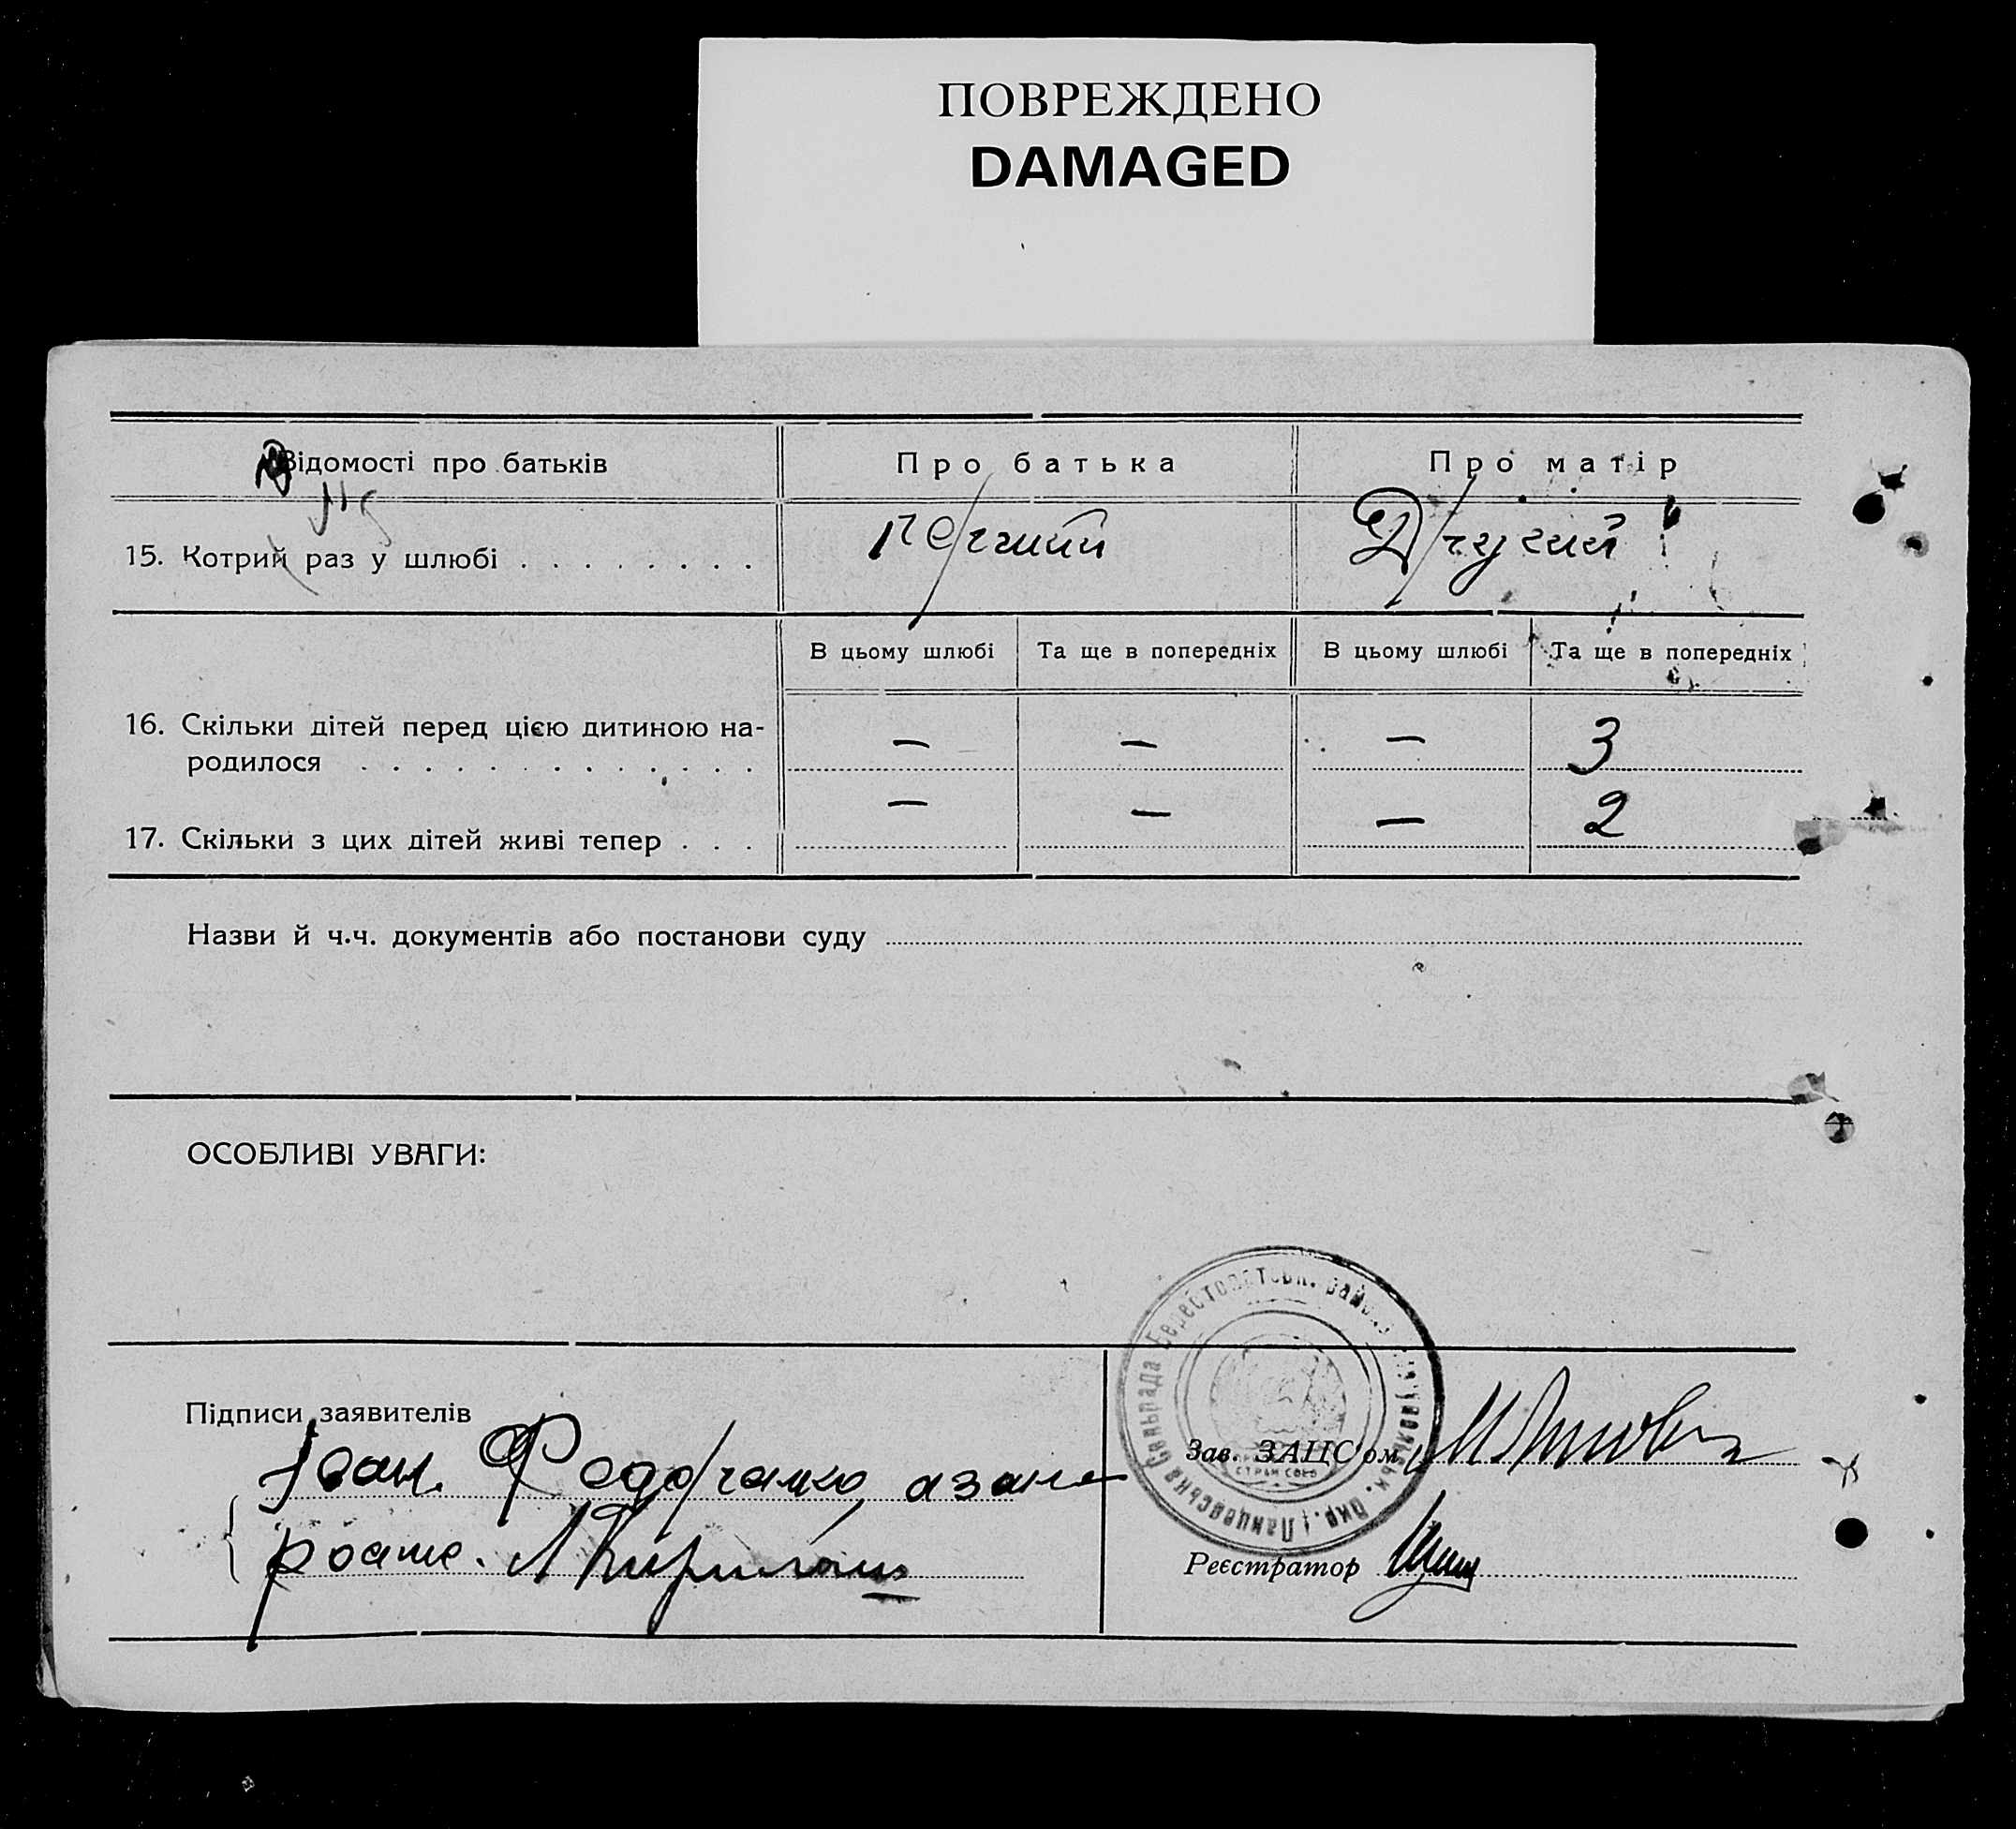 ПОВРЕЖДЕНО
DAMAGED
Відомості про батьків
Про батька
Про матір
15. Котрий раз у шлюбі . . . . . . . .
Перший
Другий
В цьому шлюбі
Та ще в попередніх
В цьому шлюбі
Та ще в попередніх
16. Скільки дітей перед цією дитиною на-
родилося . . . . . . . . . . . . .
— — — 3
17. Скільки з цих дітей живі тепер . . .
— — — 2
Назви й ч.ч. документів або постанови суду
ОСОБЛИВІ УВАГИ:
Підписи заявителів
Іван Федорченко
Зав. ЗАЦС'ом
Реєстратор
Сельрада Берестоватськ.